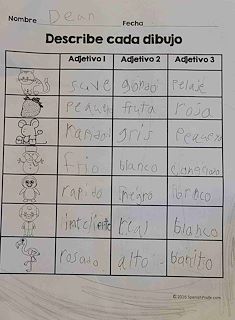 Nombre Dean Fecha
Describe cada dibujo
Adjetivo 1 Adjetivo 2 Adjetivo 3
suve gordo pelaje
pequeño fruta rosa
rapido gris pequeño
frio blanco
rapido negro blanco
inteliente real blanco
rosado alto bonito
© 2016 SpanishProfe.com